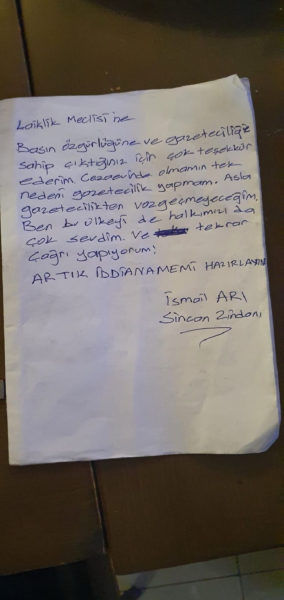 Laiklik Meclisi'ne
Basın özgürlüğüne ve gazeteciliğe
sahip çıktığınız için çok teşekkür
ederim. Cezaevinde olmamın tek
nedeni gazetecilik yapmam. Asla
gazetecilikten vazgeçmeyeceğim.
Ben bu ülkeyi de halkımızı da
çok sevdim. Ve tekrar
çağrı yapıyorum!
ARTIK İDDİANAMEMİ HAZIRLAYIN
İsmail ARI
Sincan Zindanı